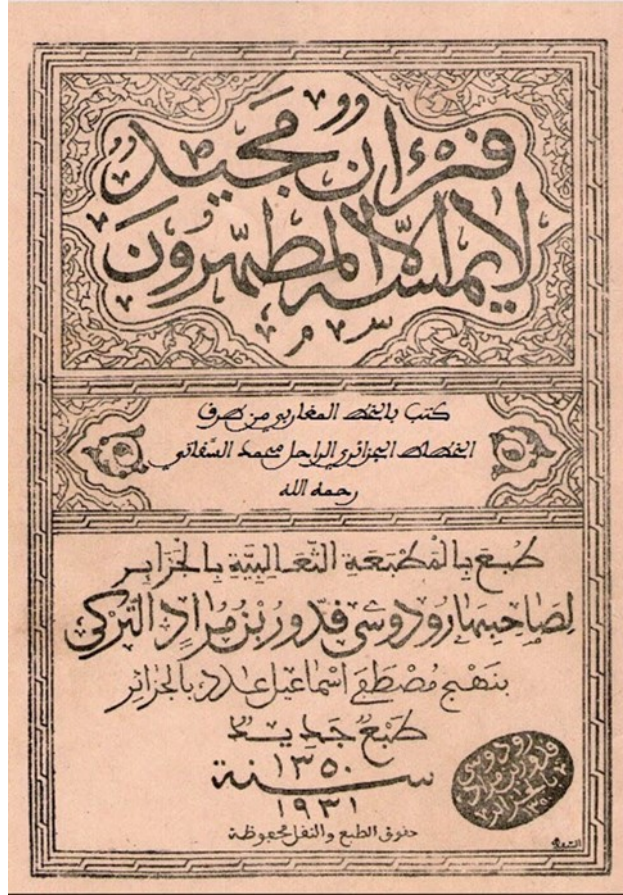 فُرْءَان مَجِيدٌ
لَا يَمَسُّهُ إِلَّا الْمُطَهَّرُونَ
كتب بالخط المغاربي من طرف
الخطاط الجزائري الراحل محمد السفاتي
رحمه الله
طُبِعَ بِالْمَطْبَعَةِ الثَّعَالِبِيَّةِ بِالْجَزَايِر
لِصَاحِبِهَا رُودُوسِي قَدُّور بْن مُرَاد التُّرْكِي
بِنَهْجِ مُصْطَفَى اسْمَاعِيل بِالْجَزَائِر
طَبْعٌ جَدِيدٌ
سنة ١٣٥٠
١٩٣١
حقوق الطبع والنقل محفوظة
رودوسي
قدور بن مراد
بالجزائر